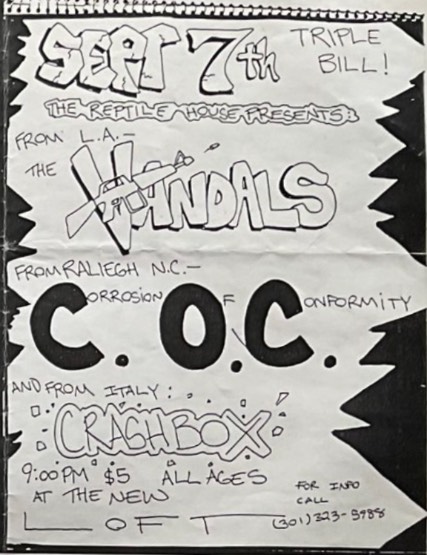 SEPT 7th TRIPLE BILL!
THE REPTILE HOUSE PRESENTS:
FROM L.A.-
THE VANDALS
FROM RALIEGH N.C.-
CORROSION OF CONFORMITY
C. O. C.
AND FROM ITALY:
CRASHBOX
9:00 PM $5 ALL AGES
AT THE NEW
LOFT
FOR INFO
CALL
(301) 323-5988